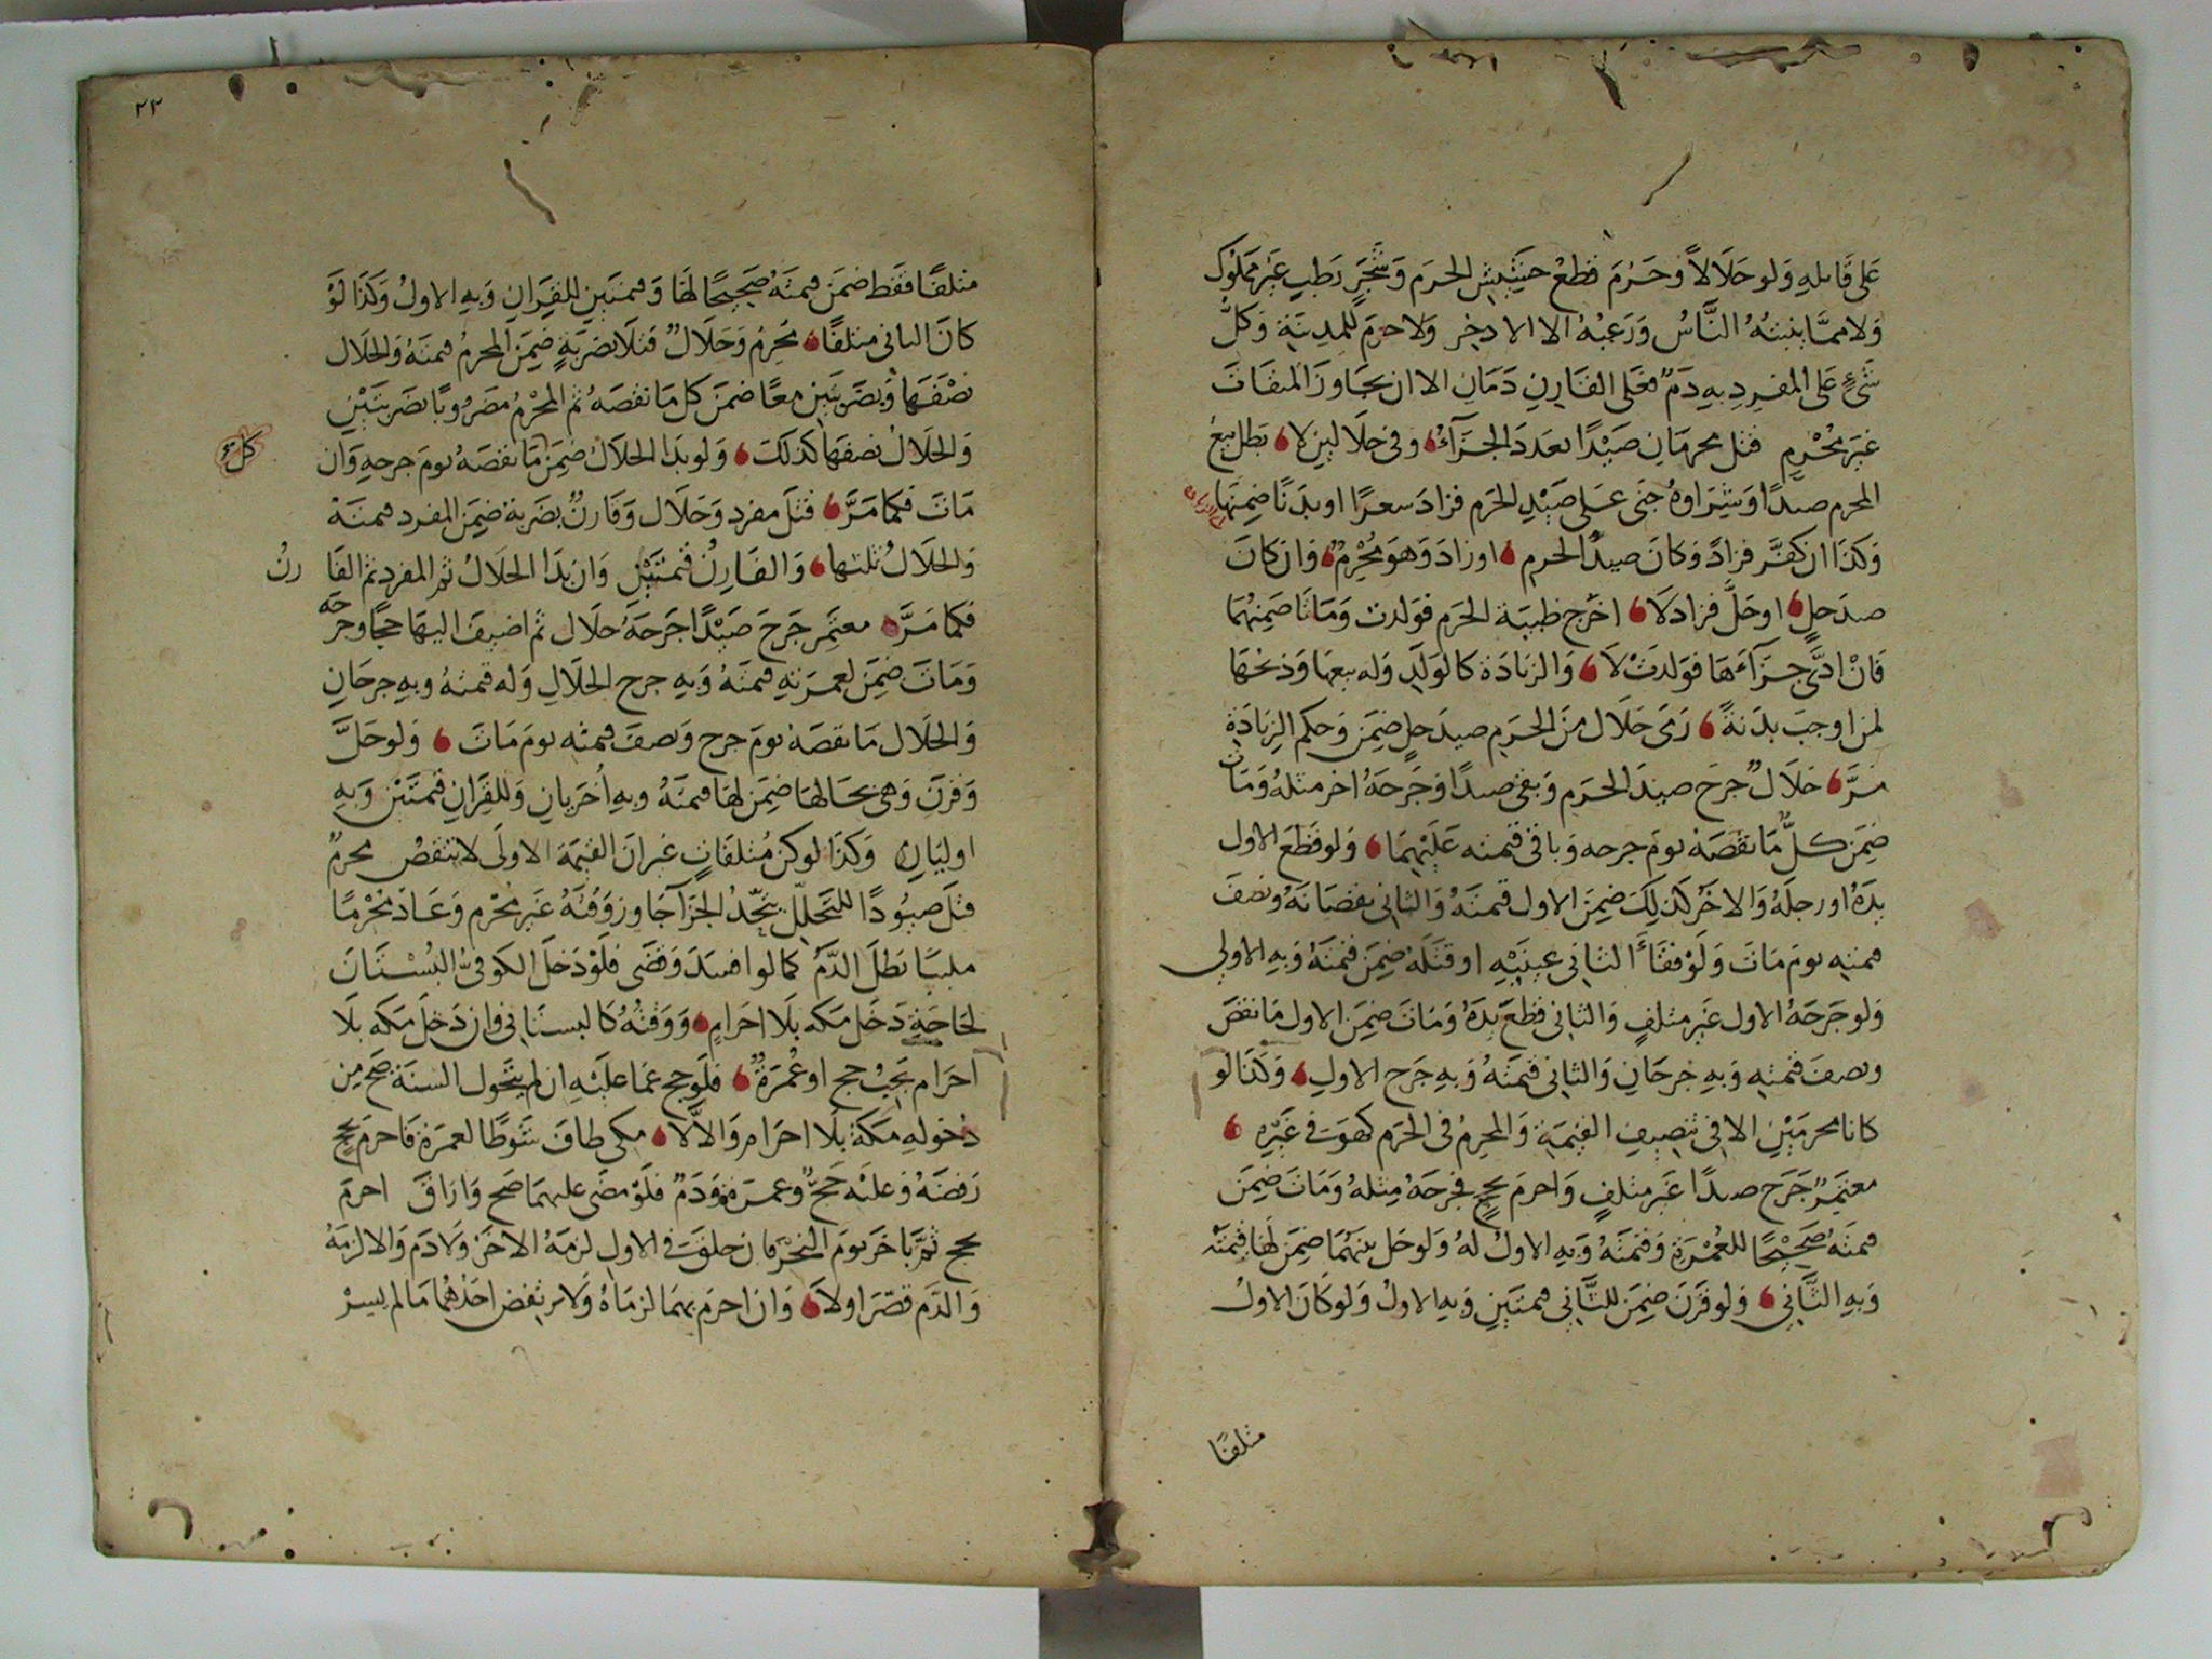 عَلى قَاتلهِ وَلو حَلَالاً وَحَرُمَ قطعُ حشيش الحرَم وَشَجَرٍ رَطبٍ غَيْر مملوْك
وَلا ممَّا ينبتهُ النَّاسُ وَرَعيُهُ الا الاذخر وَلا حرَمَ للمدِينَة وَكلُّ
شَيْءٍ عَلى المفردِ بهِ دَمٌ فعَلى القَارِنِ دَمَانِ الا ان يجَاوزَ الميقَات
غيرَ مُحْرم قتل محرمَانِ صَيْدًا تعَددَ الجزَآءُ وَفي حلَاليْن لا بَطل بيعُ
المحرم صيدًا وَشِرَاوهُ جنَى عَلى صَيْدِ الحَرم فزادَ سعرًا او بدَنًا ضمِنَها
وَكذَا ان كفَّر فزادَ وَكانَ صيدَ الحرم او زادَ وَهوَ مُحْرِمٌ وَان كانَ
صيدَ حلٍ او حَلَّ فزاد لَا اخرَج ظبيَة الحَرم فوَلدت وَمَاتَا ضَمِنهُمَا
فَانْ ادَّى جزَآءَهَا فوَلدتْ لَا وَالزيَادَة كالوَلدِ وَله بيعهَا وَذبحُهَا
لمن اوجبَ بدَنةً رَمَى حَلَال منَ الحَرَم صيدَ حلٍ ضَمِنَ وَحكم الزيَادَةِ
مَرَّ حَلَالٌ جرَحَ صيدَ الحَرم وَبقى صيدًا وَجَرحَهُ اخر مثلهُ وَمَات
ضَمِنَ كلٌّ مَا نقصَهُ يومَ جرحه وَباقى قيمته عَلَيْهِمَا وَلو قطعَ الاول
يدَهُ او رجلَهُ وَالاخَرُ كذلكَ ضَمِنَ الاول قيمتَهُ وَالثانى نقصَانهُ وَنصفَ
قيمته يومَ مَاتَ وَلَوْ فقَأَ الثانى عينَيْهِ او قتلَهُ ضَمِنَ قيمَتهُ وَبهِ الاولى
وَلو جَرَحَهُ الاول غَير متلفٍ وَالثانى قطعَ يدَهُ وَمَاتَ ضَمِنَ الاول مَا نقصَ
وَنصفَ قيمته وَبهِ جرحَانِ وَالثانى قيمَتهُ وَبهِ جَرح الاولِ وَكذَا لو
كانا محرمَيْنِ الا فى تنصيفِ القيمَةِ وَالمحرمُ فى الحَرم كهوَ فى غَيْرهِ
معتمِرٌ جَرَح صيدًا غَير متلفٍ وَاحرمَ بحجٍ فجرحَهُ مِثلهُ وَمَاتَ ضَمِنَ
قيمتَهُ صَحيْحًا للعُمْرَةِ وَقيمَتَهُ وَبهِ الاولُ لهُ وَلو حَل بينهُمَا ضَمِنَ لهَا قيمَتَهُ
وَبهِ الثَّانى وَلو قَرَنَ ضَمِنَ للثَّانى قيمتَيْنِ وَبهِ الاولُ وَلو كَانَ الاولُ
متلفًا
٢٢
متلفًا فَقَط ضَمنَ قيمَتَهُ صَحيْحًا لهَا وَقيمتَيْنِ للقِرَانِ وَبهِ الاولُ وَكذَا لوْ
كانَ الثانى متلفًا مُحرِمٌ وَحَلَالٌ قتلَا بضَرْبَةٍ ضَمِنَ المحرمُ قيمتَهُ وَالحلَال
نصْفَهَا وَبضَرْبتَيْنِ معًا ضَمنَ كل مَا نقصَهُ ثم المحْرمُ مضرُوبًا بضَربتَيْنِ
وَالحَلَالُ نصفهَا كذلكَ وَلو بَدَا الحلَالُ ضَمِنَ مَا نقصَهُ يومَ جرحهِ وَان
كل
مَاتَ فكمَا مَرَّ قتَلَ مفرد وَحَلَال وَقَارنٌ بضَربة ضَمِنَ المفرد قيمتَهُ
وَالحلَالُ ثلثهَا وَالقَارِنُ قيمتَيْنِ وَان بَدَا الحلَالُ ثم المفرد ثم القَا رنُ
فكمَا مَرَّ معتَمِر جَرَحَ صَيْدًا جَرحَهُ حَلَال ثم اضيفَ اليهَا حجًا وجَرحَه
وَمَاتَ ضَمِنَ لعمرَتهِ قيمتَهُ وَبهِ جرح الحلَالِ وَله قيمتهُ وبهِ جرحَانِ
وَالحلَال مَا نقصَهُ يومَ جرح وَنصفَ قيمته يومَ مَاتَ وَلو حَلَّ
وَقرَنَ وَهى بحَالهَا ضَمِنَ لهَا قيمتَهُ وبهِ اُخرَيانِ وَللقِرَانِ قيمَتَيْنِ وَبهِ
اوليَانِ وَكذَا لو كنّ مُتلفَاتٍ غيرَ انَ القيمَة الاولَى لا تنقصُ محرمٌ
قتلَ صيُودًا للتحَلل يتّحدُ الجزَآ جَاوزَ وَقتَهُ غَير محْرم وَعَادَ مُحْرمًا
ملبيًا بَطلَ الدَّمُ كما لو افسَدَ وَقضَى فلَوْ دَخلَ الكوفىُّ البُسْتَانَ
لحَاجَةٍ دَخَل مَكه بلَا احرَامٍ وَوَقتُهُ كالبسْتَانى وَان دَخلَ مَكه بلَا
احرَام يَجبُ حج او عُمْرَةٌ فلَو حج عمَا عليْهِ ان لم يتحول السنَة صَح مِن
دُخولهِ مَكةَ بلَا احرَام وَالَّا لَا مكى طافَ شوْطًا لعمرَة فَاحرمَ بحجٍ
رَفضَهُ وَعليْه حَجٌّ وَعمرَة وَدَمٌ فلَوْ مضَى عليهمَا صَح وَارَاقَ احرمَ
بحج ثمَّ باخرَ يومَ النحْرِ فان حلقَ فى الاول لزمَهُ الاخَرُ وَلَا دَم وَالا لزمَهُ
وَالدَّم قصّرَ اولَا وَان احرَم بهمَا لزمَاهُ وَلا يرتفض احدُهُمَا مَا لم يسِرْ